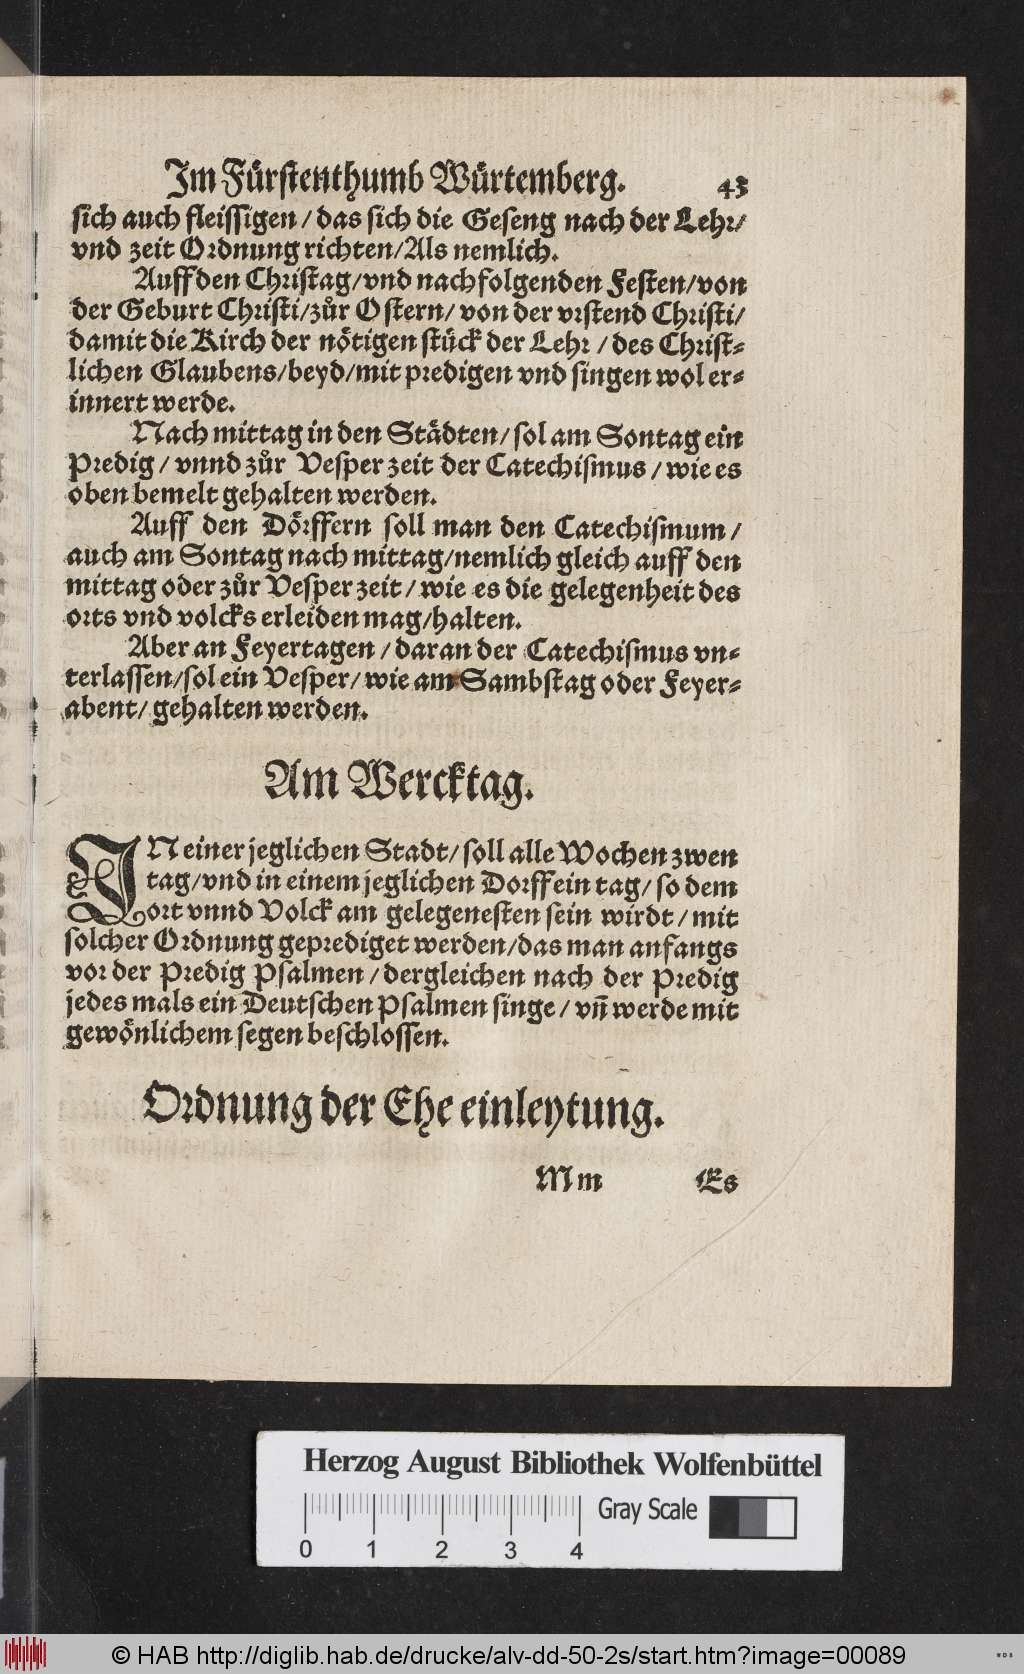 Im Fürstenthumb Würtemberg. 43
sich auch fleissigen / das sich die Geseng nach der Lehr/
vnd zeit Ordnung richten/Als nemlich.
Auff den Christag/vnd nachfolgenden Festen/von
der Geburt Christi/zůr Ostern/ von der vrstend Christi/
damit die Kirch der nötigen stück der Lehr / des Christ-
lichen Glaubens/beyd/mit predigen vnd singen wol er-
innert werde.
Nach mittag in den Städten/sol am Sontag ein
Predig / vnnd zůr Vesper zeit der Catechismus / wie es
oben bemelt gehalten werden.
Auff den Dörffern soll man den Catechismum /
auch am Sontag nach mittag/nemlich gleich auff den
mittag oder zůr Vesper zeit / wie es die gelegenheit des
orts vnd volcks erleiden mag/halten.
Aber an Feyertagen / daran der Catechismus vn-
terlassen/sol ein Vesper/ wie am Sambstag oder Feyer-
abent/ gehalten werden.
Am Wercktag.
IN einer jeglichen Stadt/ soll alle Wochen zwen
tag/vnd in einem jeglichen Dorff ein tag/ so dem
ort vnnd Volck am gelegenesten sein wirdt / mit
solcher Ordnung geprediget werden/das man anfangs
vor der Predig Psalmen / dergleichen nach der Predig
jedes mals ein Deutschen Psalmen singe / vñ werde mit
gewönlichem segen beschlossen.
Ordnung der Ehe einleytung.
Mm Es
Herzog August Bibliothek Wolfenbüttel
Gray Scale
0 1 2 3 4
© HAB http://diglib.hab.de/drucke/alv-dd-50-2s/start.htm?image=00089